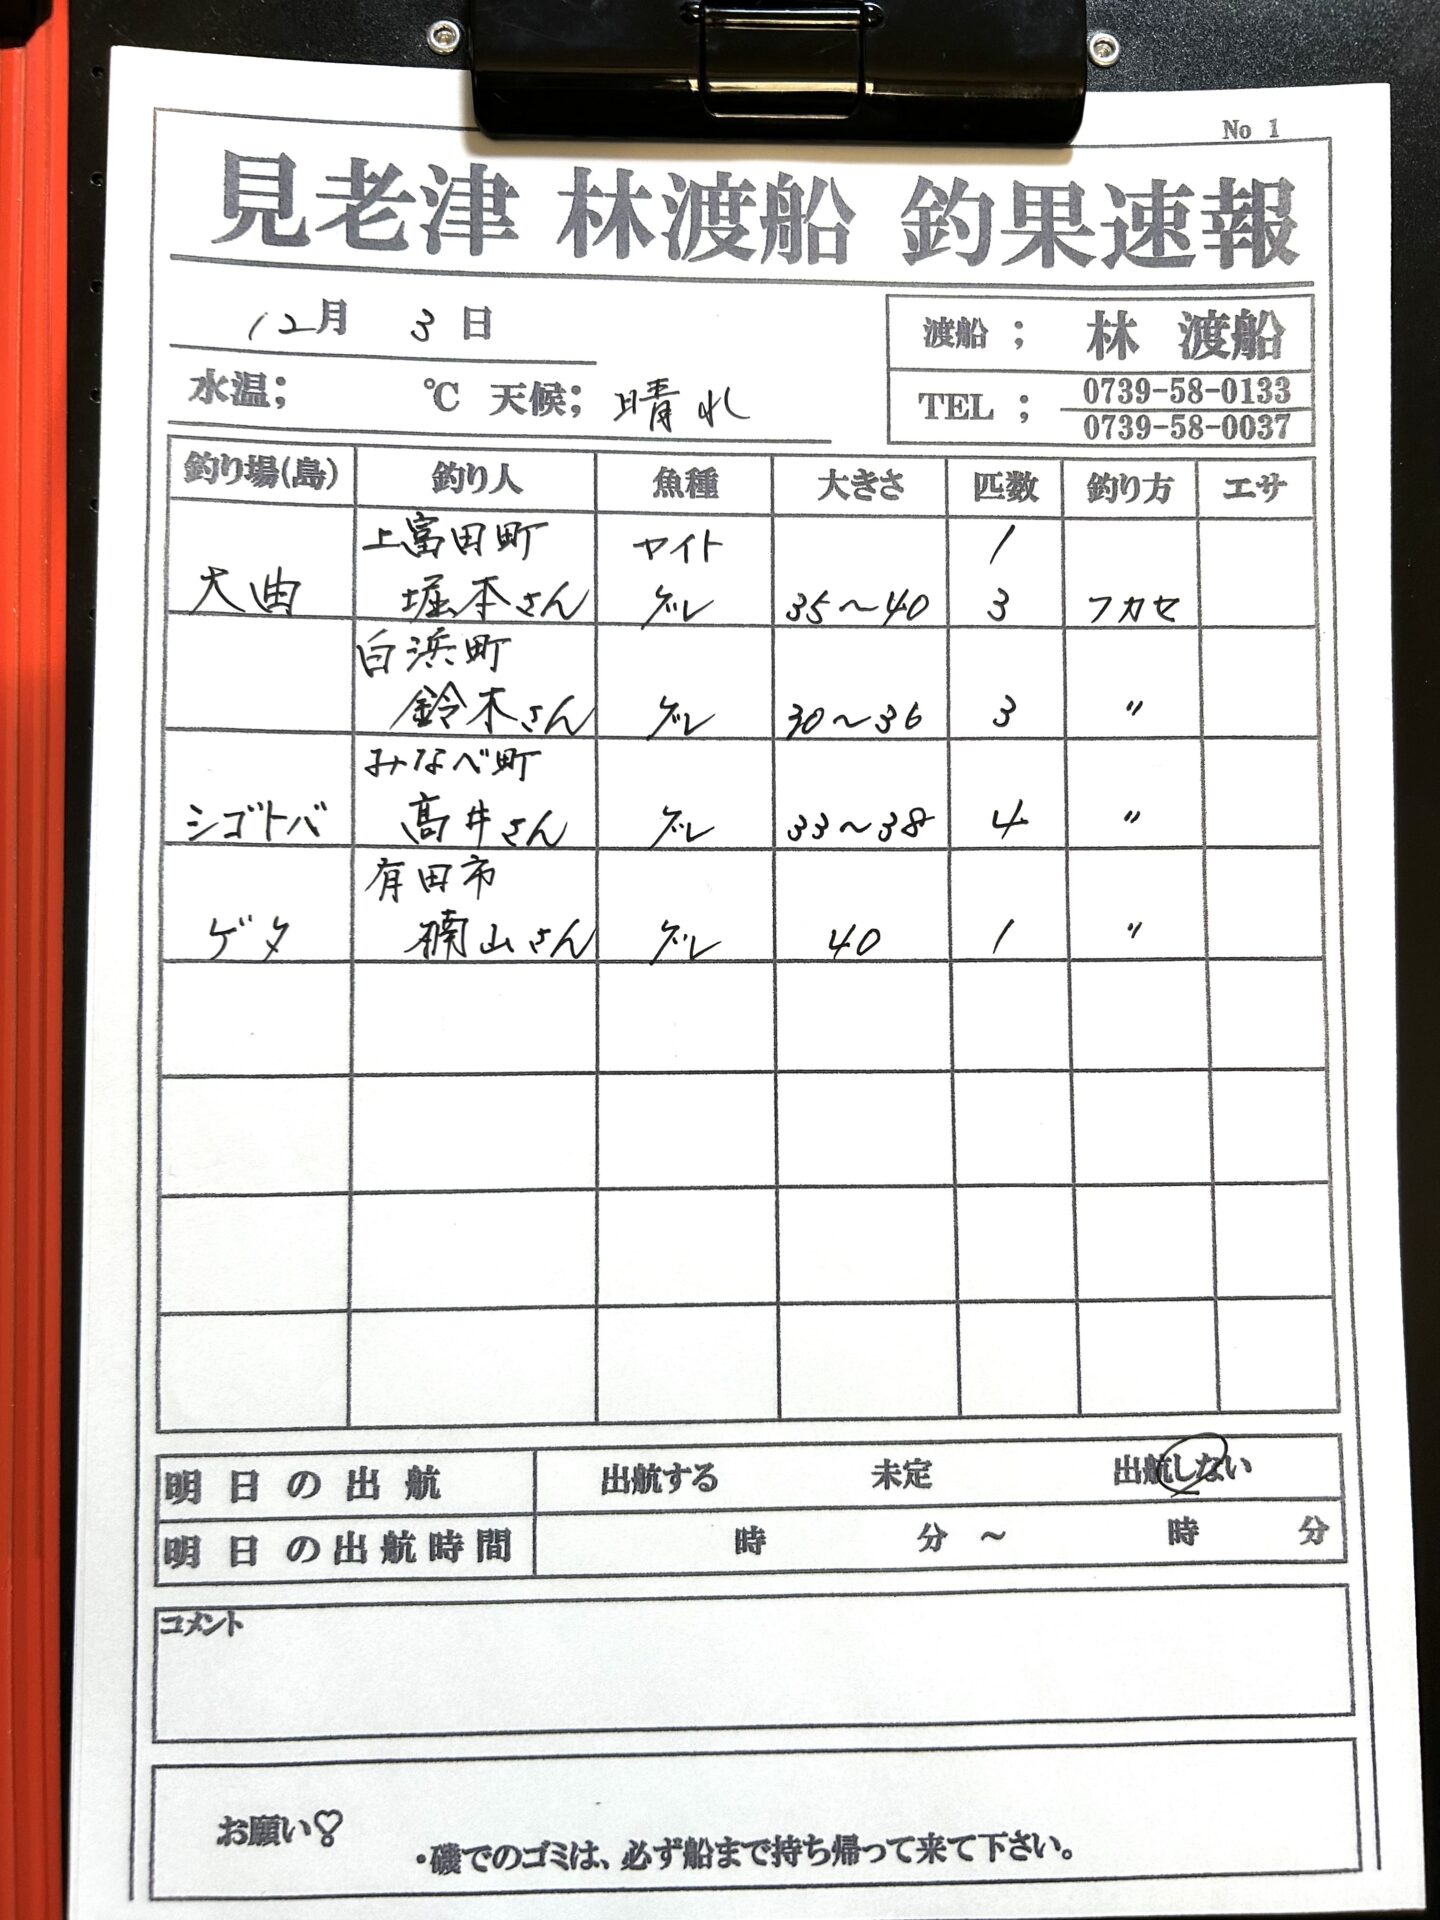 No 1
見老津 林渡船 釣果速報
12月 3日
渡船 ; 林 渡船
水温; ℃ 天候; 晴れ
TEL ; 0739-58-0133
0739-58-0037
釣り場(島) 釣り人 魚種 大きさ 匹数 釣り方 エサ
上富田町 ヤイト 1
大曲 堀本さん グレ 35〜40 3 フカセ
白浜町
鈴木さん グレ 30〜36 3 〃
みなべ町
シゴトバ 髙井さん グレ 33〜38 4 〃
有田市
ゲタ 楠山さん グレ 40 1 〃
明日の出航 出航する 未定 出航しない
明日の出航時間 時 分 〜 時 分
コメント
お願い♡
・磯でのゴミは、必ず船まで持ち帰って来て下さい。